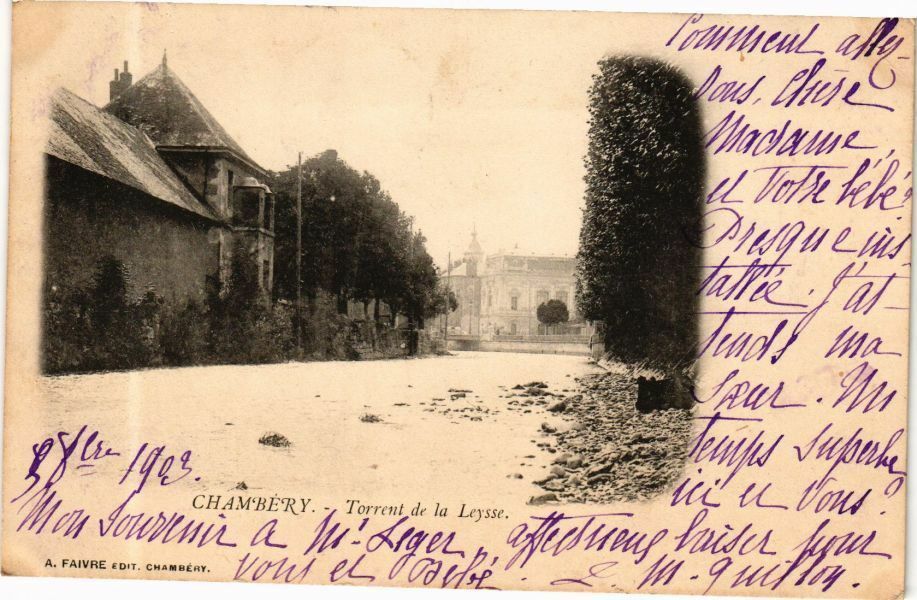 Comment allez-
vous, Chère
Madame,
et Votre bébé?
Presque ins-
tallée. J'at-
tends ma
Sœur. Un
temps superbe
ici et Vous?
8bre 1903.
CHAMBÉRY. - Torrent de la Leysse.
Mon Souvenir à Mr Leger, affectueux baiser pour
Vous et Bébé.
A. FAIVRE EDIT. CHAMBÉRY.